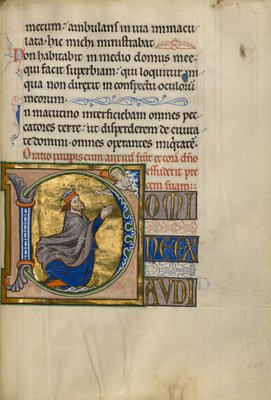 mecum: ambulans in uia immacu
lata. hic michi ministrabat.
Non habitabit in medio domus mee
qui facit superbiam: qui loquitur in
qua non direxit in conspectu oculorū
meorum.
In matutino interficiebam omnes pec
catores terre: ut disperderem de ciuita
te domini omnes operantes iniqtatē.
Oratio paupis cum anxius fuit et corā dn̄o
effuderit pre
cem suam:
DOMI
NE EX
AVDI